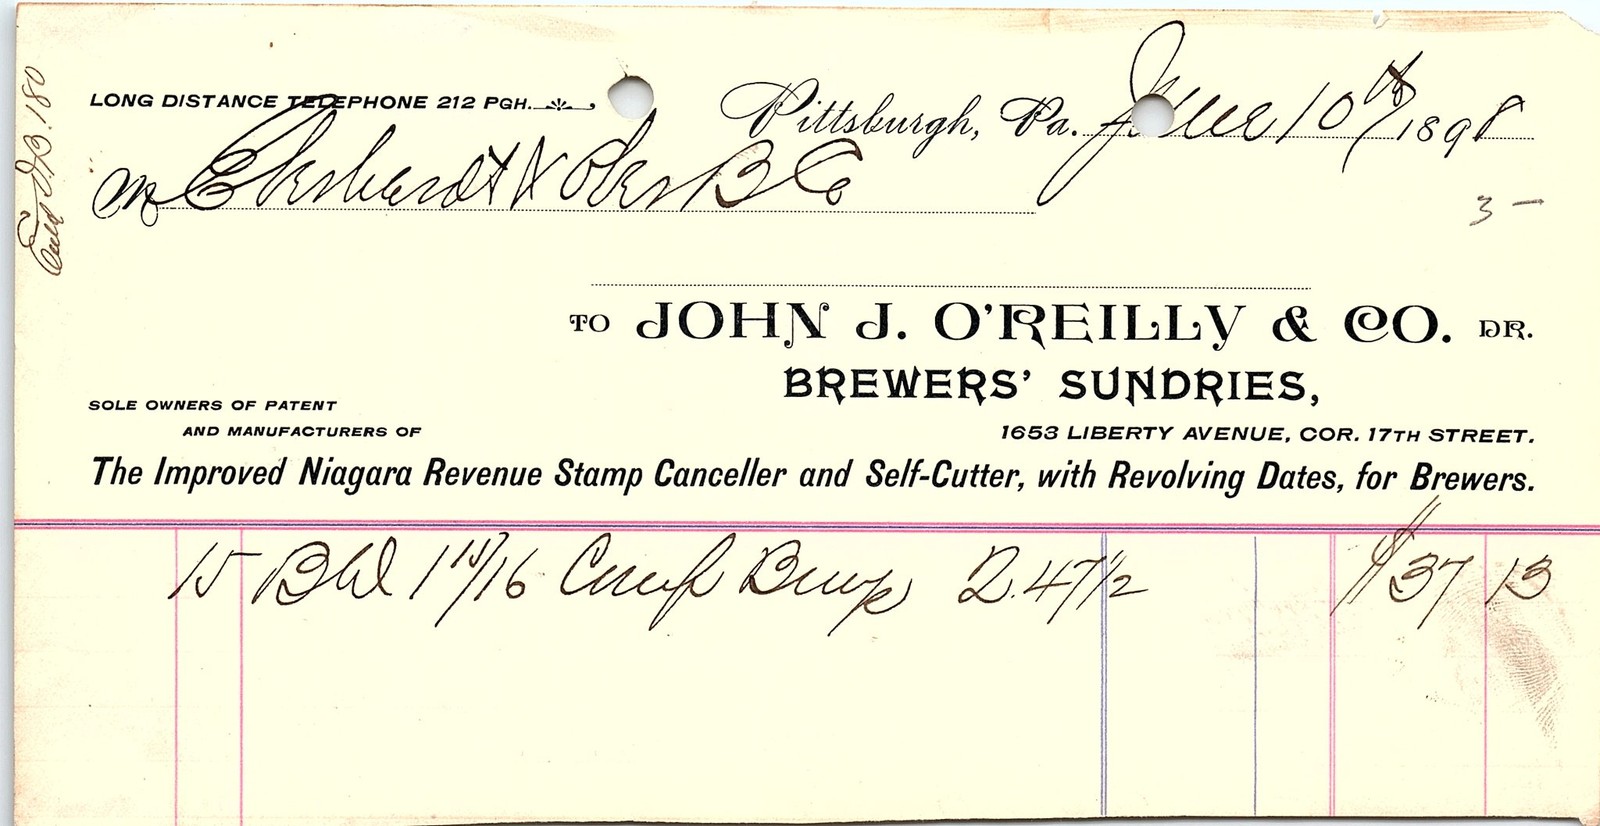 LONG DISTANCE TELEPHONE 212 PGH.
Pittsburgh, Pa. June 10th 1898
M Eberhardt & Ober B Co
3 —
TO JOHN J. O'REILLY & CO. DR.
BREWERS' SUNDRIES,
SOLE OWNERS OF PATENT
AND MANUFACTURERS OF
1653 LIBERTY AVENUE, COR. 17TH STREET.
The Improved Niagara Revenue Stamp Canceller and Self-Cutter, with Revolving Dates, for Brewers.
15 Bbl 1 11/16 Comp Bungs 2.47 1/2 $37 13
V.B. 180